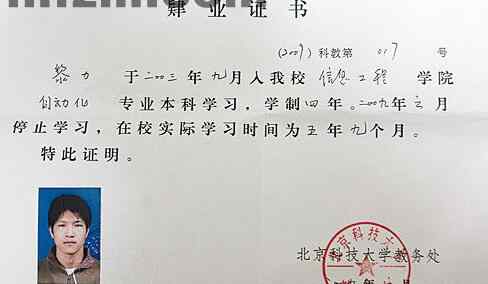 肄业证书
(2009)科教第 017 号
黎力 于二〇〇三年九月入我校 信息工程 学院
自动化 专业本科学习,学制四年。二〇〇九年 月
停止学习,在校实际学习时间为五年九个月。
特此证明。
北京科技大学教务处
京科技大
年 月